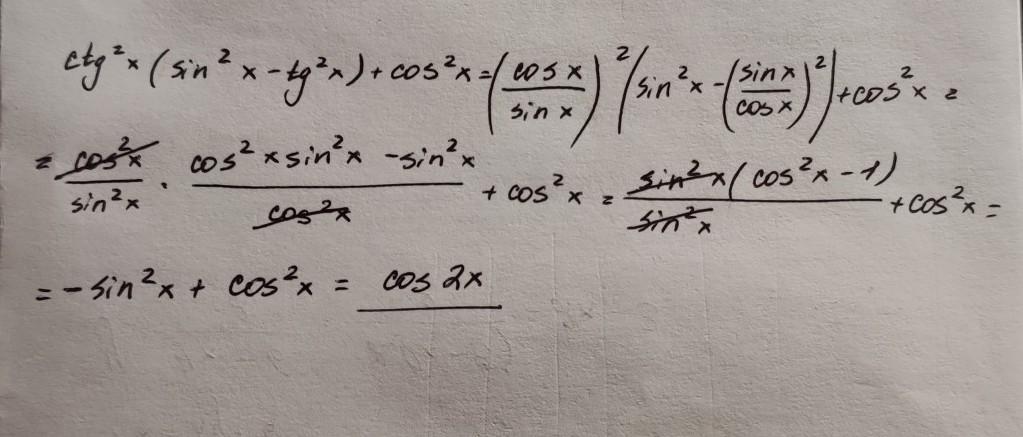 ctg²x (sin²x - tg²x) + cos²x = (cos x / sin x)² (sin²x - (sin x / cos x)²) + cos²x =
= cos²x / sin²x · (cos²x sin²x - sin²x) / cos²x + cos²x = sin²x (cos²x - 1) / sin²x + cos²x =
= - sin²x + cos²x = cos 2x